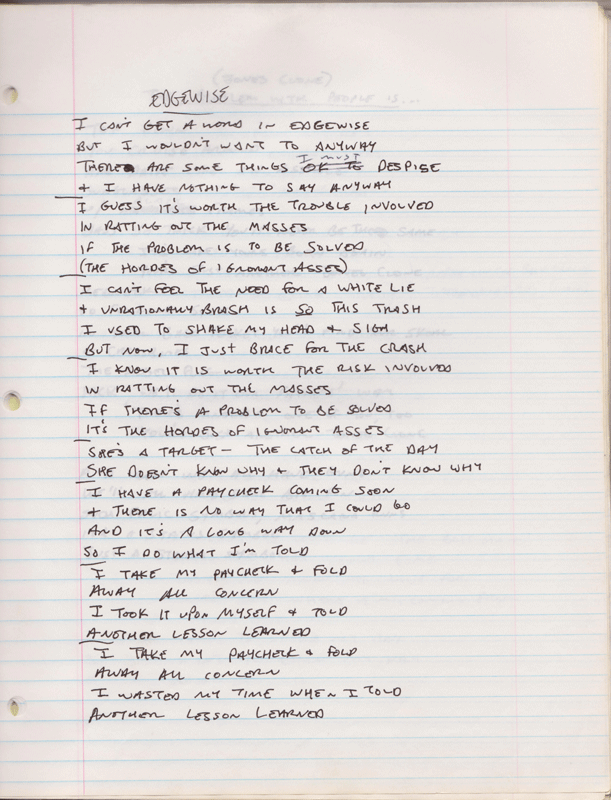 EDGEWISE
I CAN'T GET A WORD IN EDGEWISE
BUT I WOULDN'T WANT TO ANYWAY
THERE ARE SOME THINGS I MUST DESPISE
+ I HAVE NOTHING TO SAY ANYWAY
I GUESS IT'S WORTH THE TROUBLE INVOLVED
IN RATTING OUT THE MASSES
IF THE PROBLEM IS TO BE SOLVED
(THE HORDES OF IGNORANT ASSES)
I CAN'T FEEL THE NEED FOR A WHITE LIE
+ UNRATIONALLY BRASH IS SO THIS TRASH
I USED TO SHAKE MY HEAD + SIGH
BUT NOW, I JUST BRACE FOR THE CRASH
I KNOW IT IS WORTH THE RISK INVOLVED
IN RATTING OUT THE MASSES
IF THERE'S A PROBLEM TO BE SOLVED
IT'S THE HORDES OF IGNORANT ASSES
SHE'S A TARGET - THE CATCH OF THE DAY
SHE DOESN'T KNOW WHY + THEY DON'T KNOW WHY
I HAVE A PAYCHECK COMING SOON
+ THERE IS NO WAY THAT I COULD GO
AND IT'S A LONG WAY DOWN
SO I DO WHAT I'M TOLD
I TAKE MY PAYCHECK + FOLD
AWAY ALL CONCERN
I TOOK IT UPON MYSELF + TOLD
ANOTHER LESSON LEARNED
I TAKE MY PAYCHECK + FOLD
AWAY ALL CONCERN
I WASTED MY TIME WHEN I TOLD
ANOTHER LESSON LEARNED